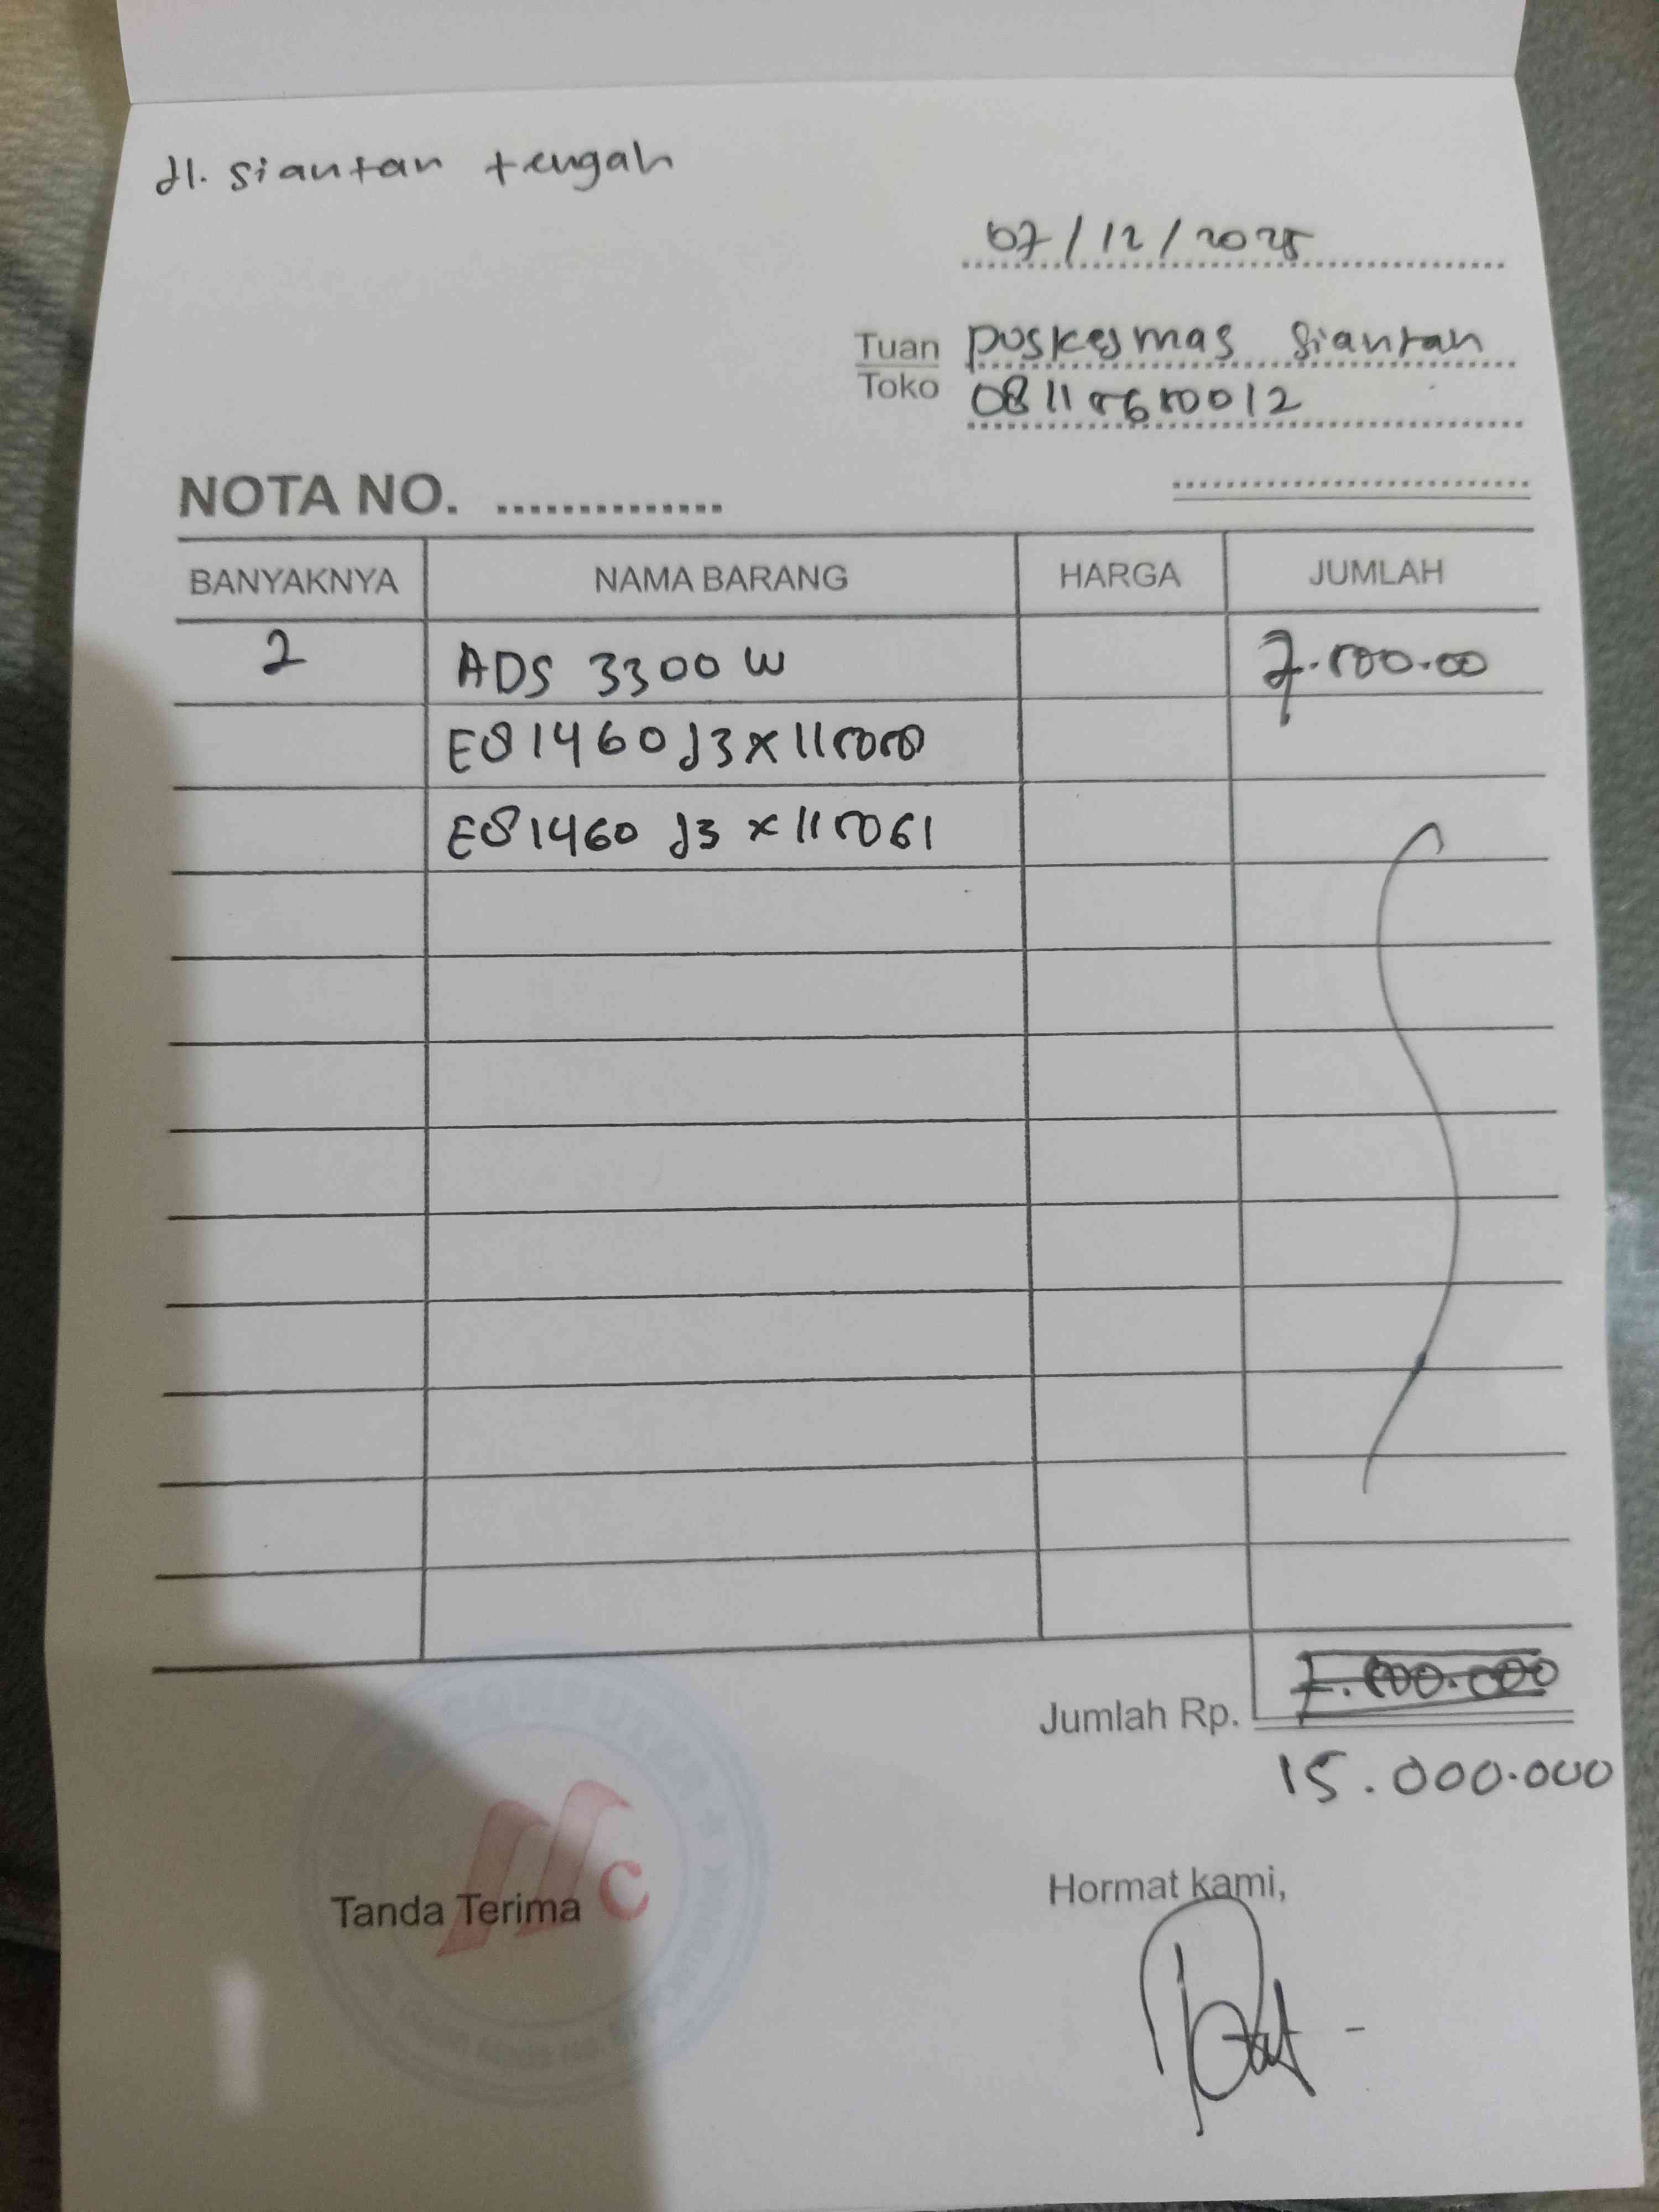 Jl. Siantan tengah
07/12/2025
Tuan Puskesmas Siantan
Toko 08115650012
NOTA NO. ..............
BANYAKNYA NAMA BARANG HARGA JUMLAH
2 ADS 3300 W 7.500.00
E81460J3X115058
E81460 J3 X115061
Jumlah Rp. 7.500.000
15.000.000
COMPUTER
Tanda Terima C
Hormat kami,